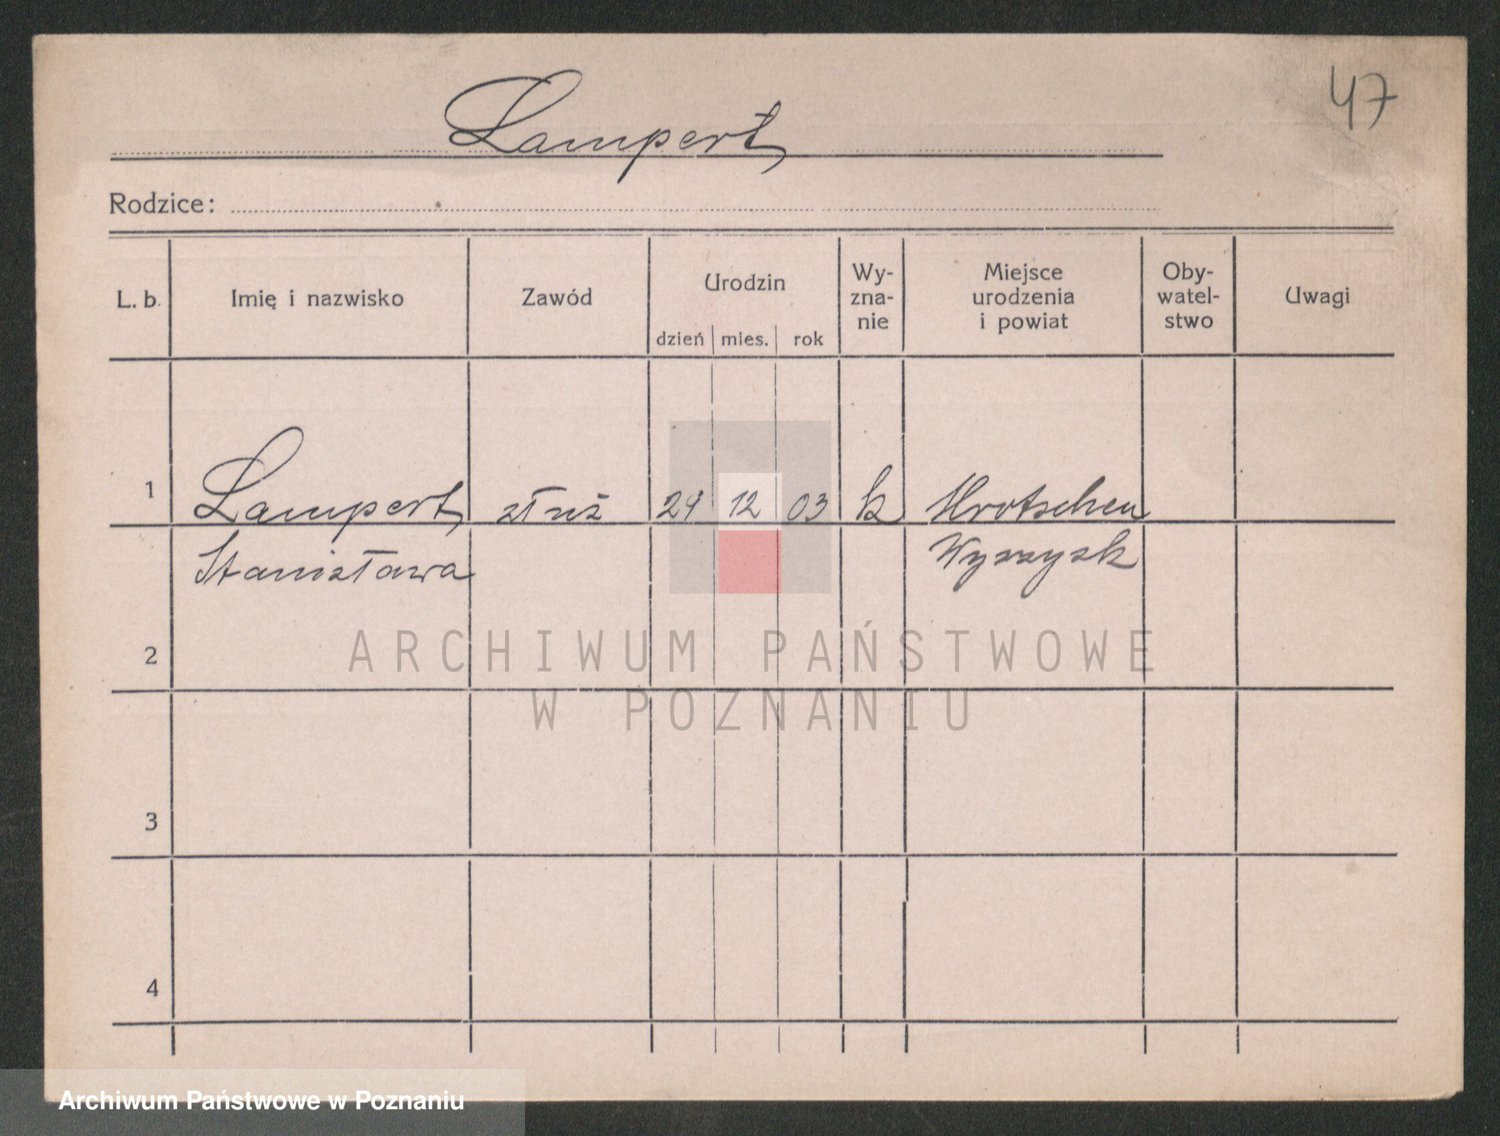 47
Lampert
Rodzice:
L. b. Imię i nazwisko Zawód Urodzin dzień mies. rok Wy-zna-nie Miejsce urodzenia i powiat Oby-watel-stwo Uwagi
1 Lampert 24 12 03 k Mrotschen
Stanisława Wyrzysk
2
3
4
ARCHIWUM PAŃSTWOWE
W POZNANIU
Archiwum Państwowe w Poznaniu